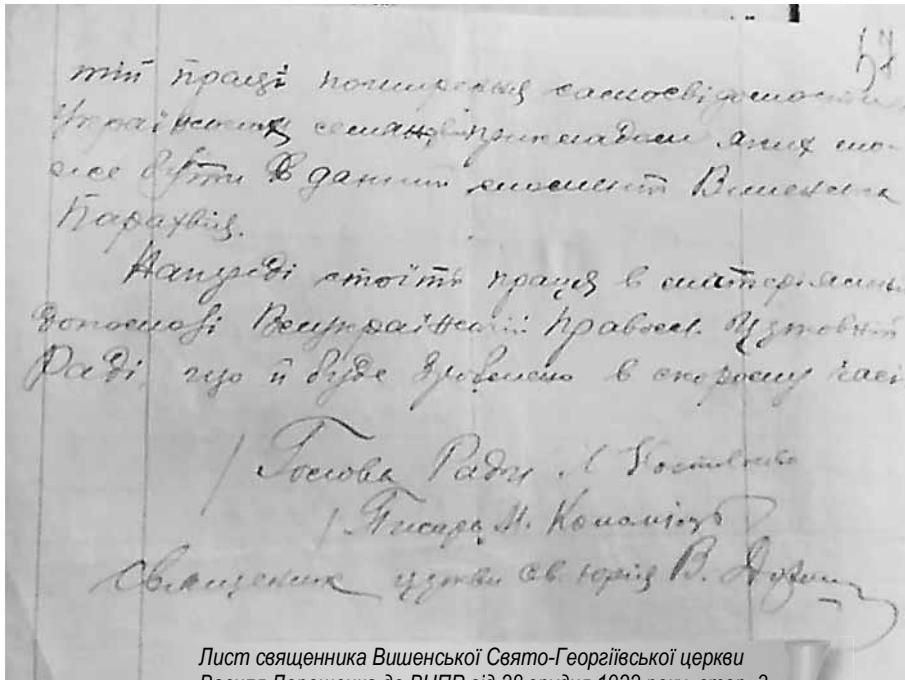 57
тій праці поширення самосвідомости
Українських селян, прикладом яких мо-
же бути в даний момент Вишенська
Парахвія.
Напереді стоїть праця в матеріяльній
допомозі Всеукраїнській Правосл. Церковній
Раді, що й буде зроблено в скорому часі
Голова Ради
Писарь М. Коломієць
Священник церкви св. Юрія В.
Лист священника Вишенської Свято-Георгіївської церкви